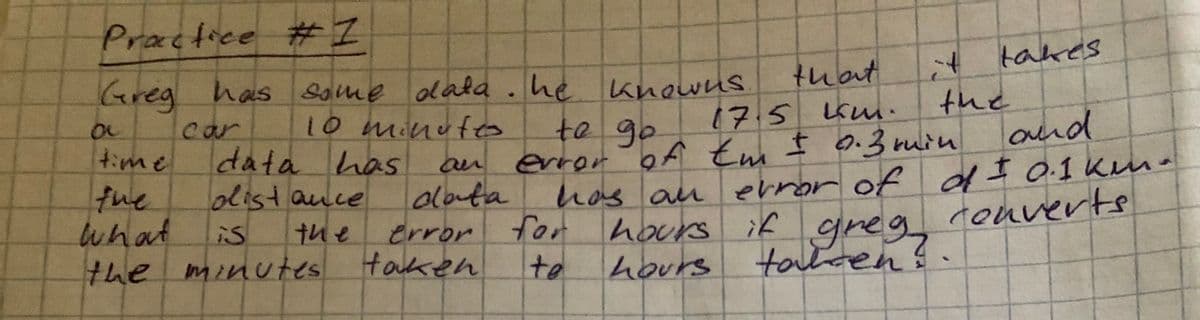 Practice #1
Greg has some data. he knowns that it takes
a car 10 minutes to go 17.5 km. the
time data has an error of tm ± 0.3 min and
the distance data has an error of d ± 0.1 km.
what is the error for hours if greg converts
the minutes taken to hours taken?.